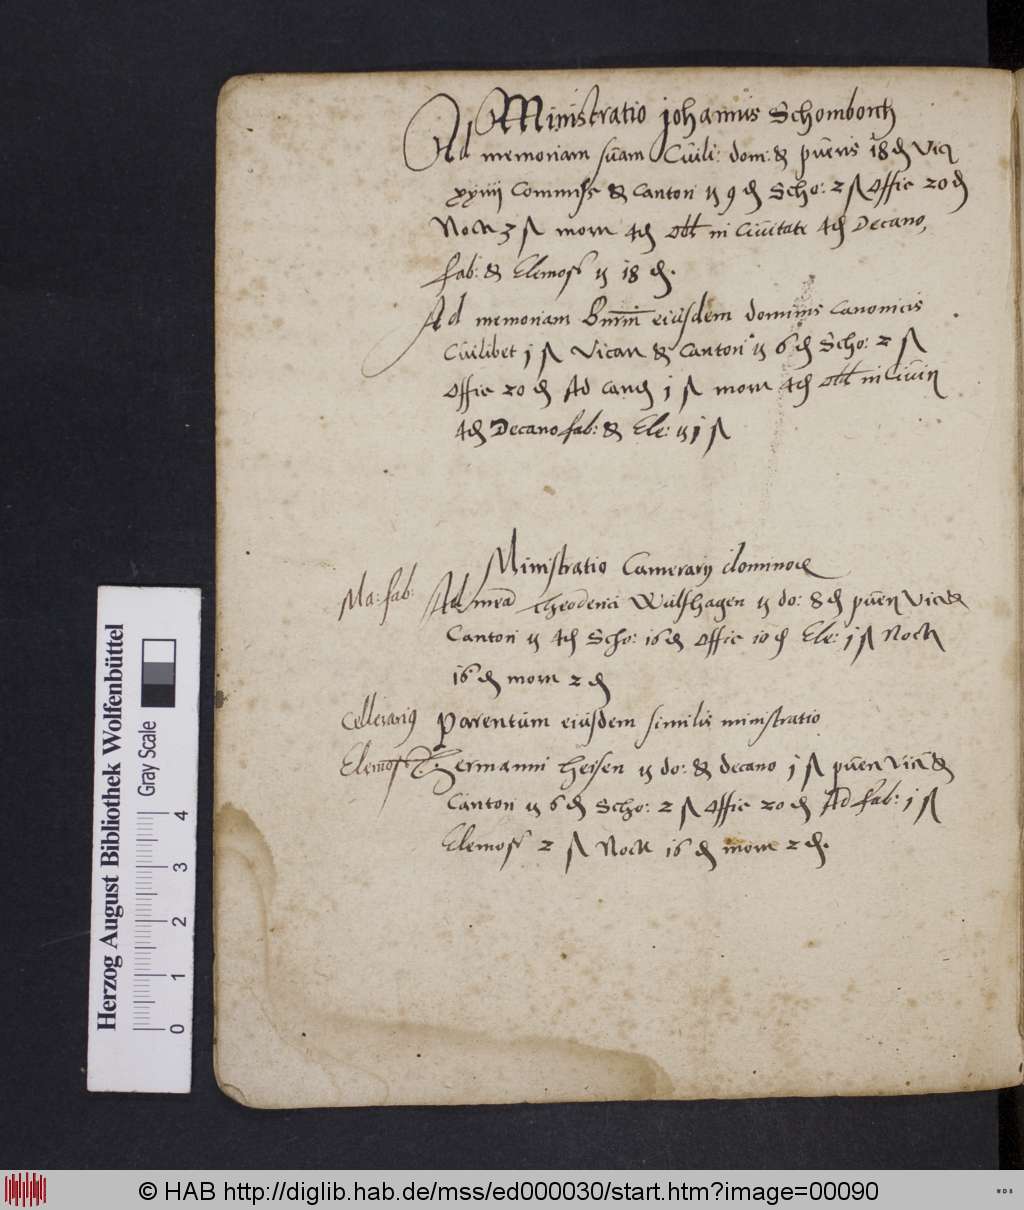 Ministratio Johannis Schomborch
Ad memoriam suam Cuili: dom: & pueris 18 ₰ Vic
xxiiii Commiss & Cantori ij 9 ₰ Scho: 2 ß Offic 20 ₰
Noct 3 ß morn 4 ₰ Obl in Civitate 4 ₰ Decano,
fab: & Elemos ij 18 ₰.
Ad memoriam eiusdem dominis Canonicis
Cuilibet j ß Vicar & Cantori ij 6 ₰ Scho: 2 ß
Offic 20 ₰ Ad cand j ß morn 4 ₰ Obl in Civi
4 ₰ Decano fab: & Ele: ij j ß
Ministratio Camerarij dominor
Ma: fab: Ad mea Theoderici Wulfhagen ij do: 8 ₰ puer Vic &
Cantori ij 4 ₰ Scho: 16 ₰ Offic 10 ₰ Ele: j ß Noct
16 ₰ morn 2 ₰
Cellerarius Parentum eiusdem similis ministratio
Elemos Hermanni Heisen ij do: & decano j ß puer Vic &
Cantori ij 6 ₰ Scho: 2 ß Offic 20 ₰ Ad fab: j ß
Elemos 2 ß Noct 16 ₰ morn 2 ₰.
Herzog August Bibliothek Wolfenbüttel
Gray Scale
0 1 2 3 4
© HAB http://diglib.hab.de/mss/ed000030/start.htm?image=00090